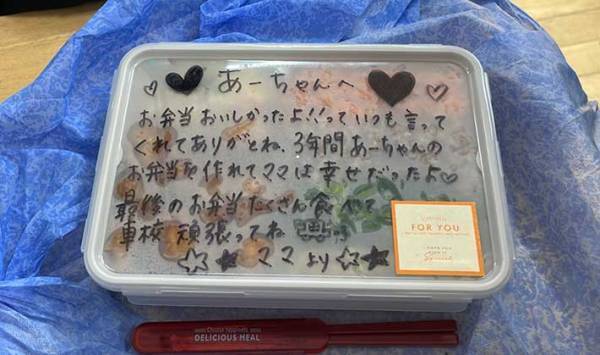 あーちゃんへ
お弁当おいしかったよ!!っていつも言って
くれてありがとね、3年間あーちゃんの
お弁当を作れてママは幸せだったよ♡
最後のお弁当たくさん食べて
車校 頑張ってね
☆★ママより☆★
FOR YOU
DELICIOUS MEAL